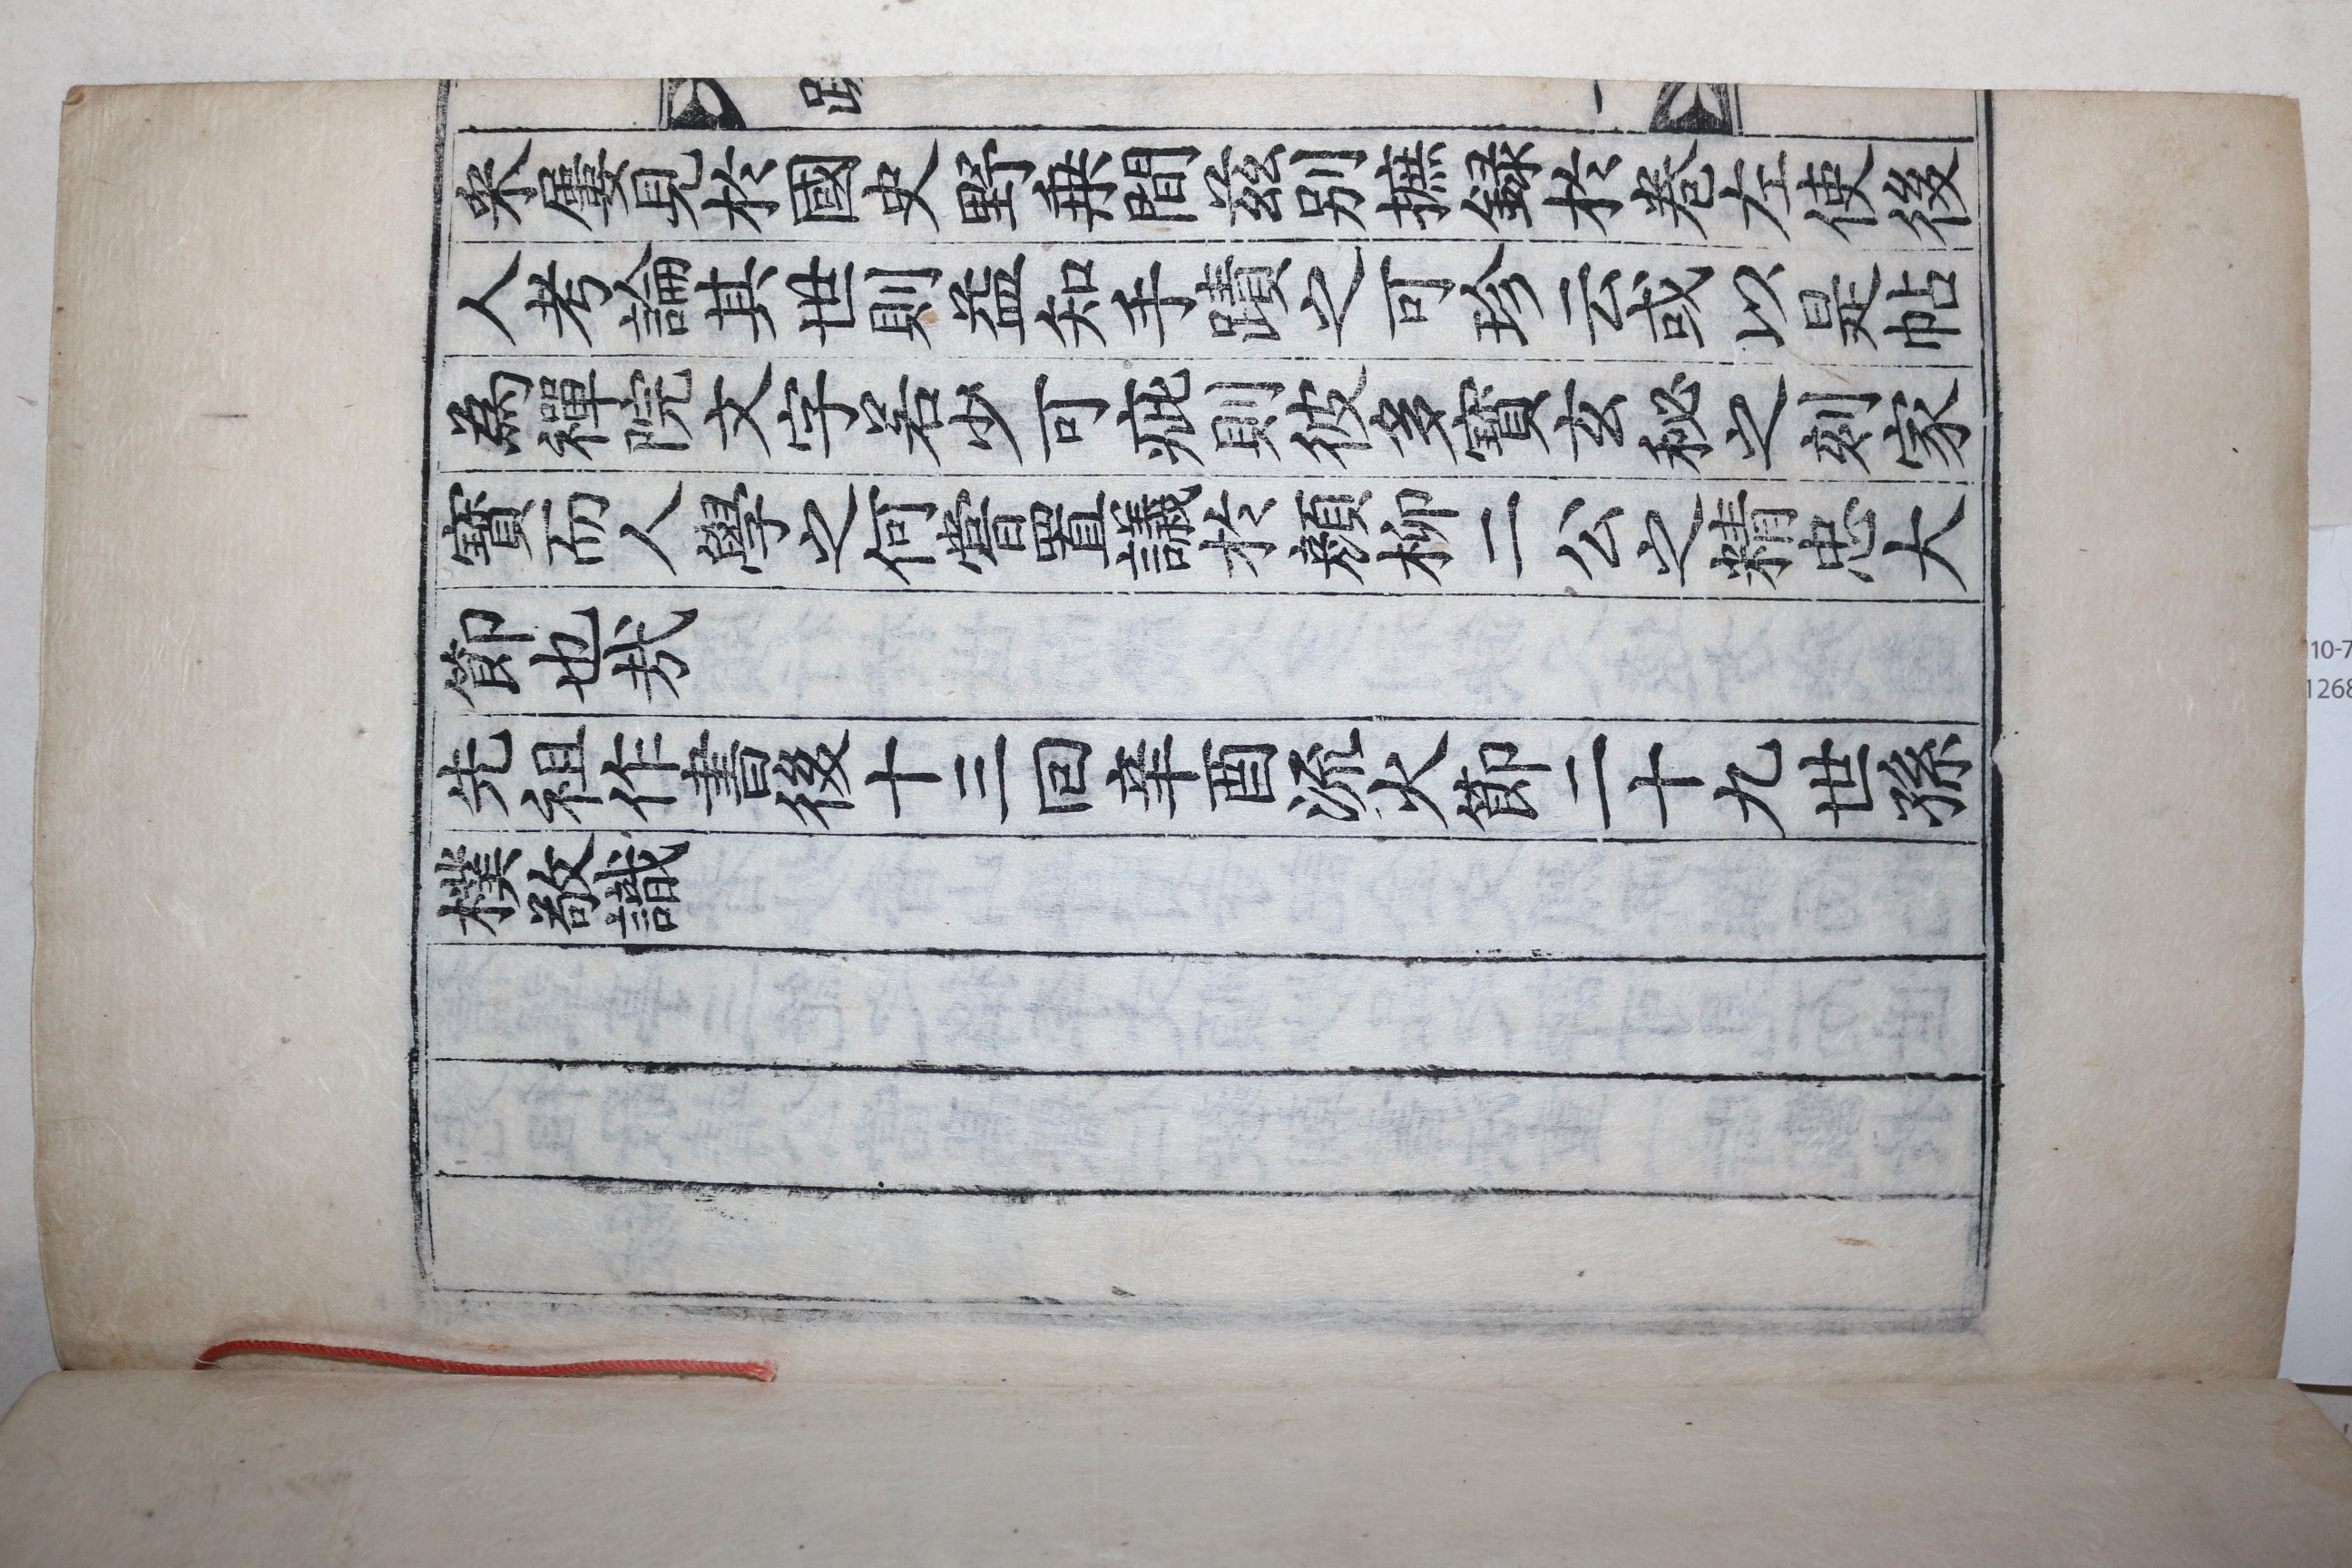 來屢見於國史野乘間玆別摭錄於卷左使後
人考論其世則益知手蹟之可珍云或以是帖
爲禪院文字若少可疵則彼多寶玄秘之刻家
寶而人學之何嘗置議於顔柳二公之精忠大
節也哉
先祖作書後十三回辛酉流火節二十九世孫
樸敬識
10-7
1268